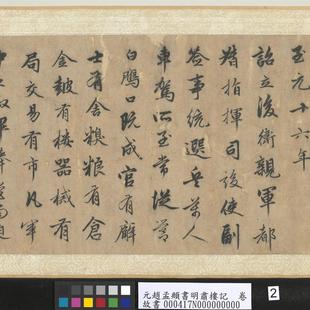 至元十六年
詔立後衛親軍都
指揮司設使副
簽事統選兵萬人
車駕所至常從營
白鴈口既成官有廨
士有舍糗粮有倉
金皷有樓器械有
局交易有市凡軍
元趙孟頫書明肅樓記　卷
故書000417N000000000
2